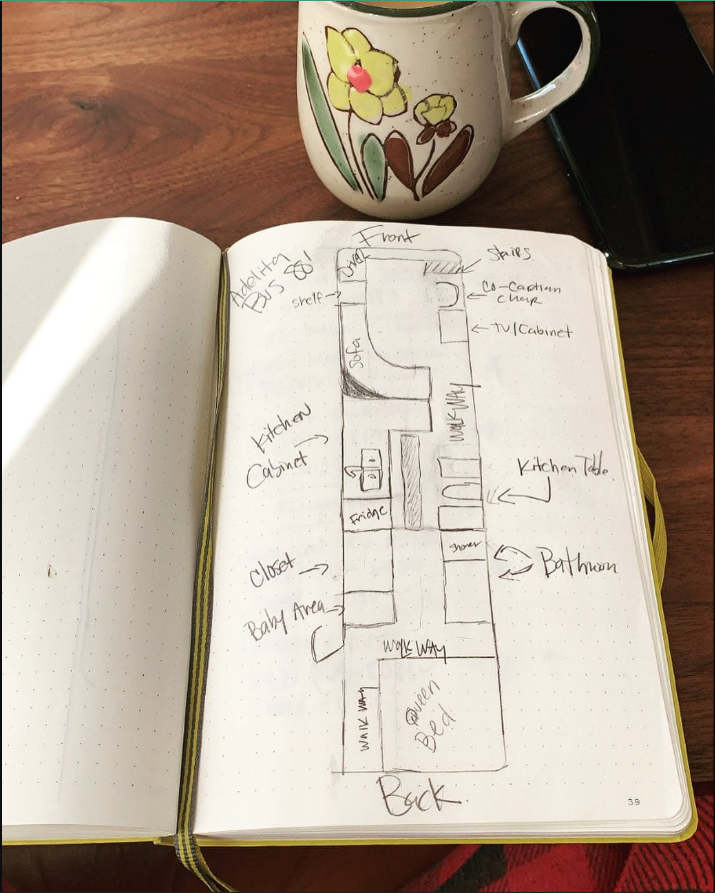 Front
Adelita
Bus 88'
Driver
Stairs
shelf
Co-Captian
Chair
TV/Cabinet
Sofa
WALK WAY
Kitchen
Cabinet
Kitchen Table
Fridge
Shower
Closet
Bathroom
Baby Area
WALK WAY
WALK WAY
Queen
Bed
Back
39